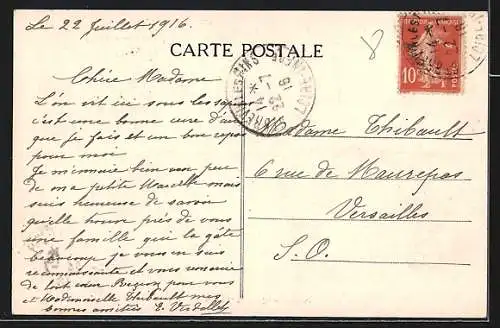 Le 22 Juillet 1916.
CARTE POSTALE
8
10c
POSTES
22 -7 16
LOIRE-INFRE
Chère Madame
L'on vit ici sous les sapins
c'est une bonne cure d'air
que je fais et un bon repos
pour moi
Je m'ennuie bien un peu
de ma petite Marcelle mais
suis heureuse de savoir
qu'elle trouve près de vous
une famille qui la gâte
beaucoup je vous en suis
reconnaissante et vous remercie
de tout cœur Bregeon pour vous
et Mademoiselle Thibault mes
bonnes amitiés E.
Madame Thibault
6 rue de Maurepas
Versailles
S. O.